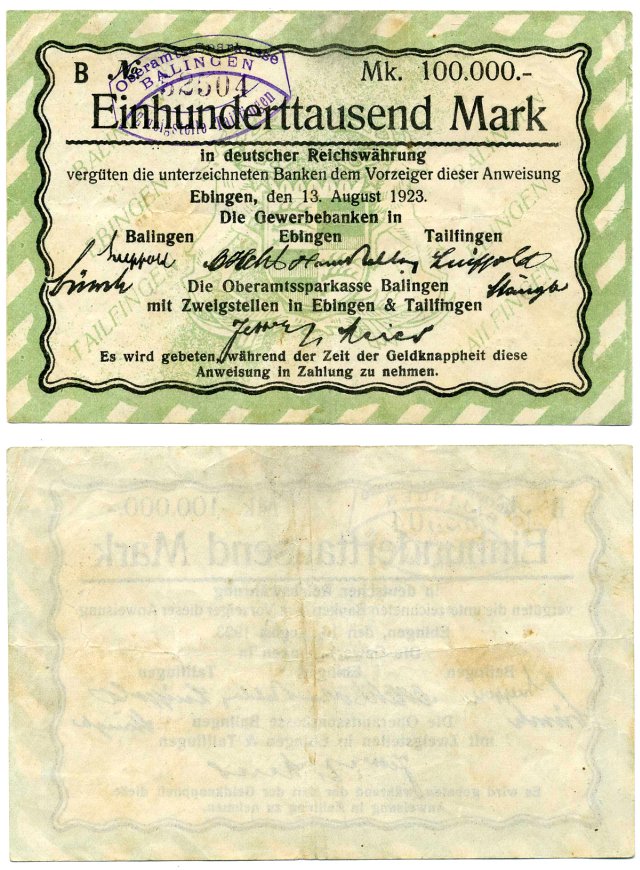 B № 52504 Mk. 100.000.-
Oberamts-Sparkasse
BALINGEN
Zweigstelle Tailfingen
Einhunderttausend Mark
in deutscher Reichswährung
vergüten die unterzeichneten Banken dem Vorzeiger dieser Anweisung
Ebingen, den 13. August 1923.
Die Gewerbebanken in
Balingen Ebingen Tailfingen
Luippold
Die Oberamtssparkasse Balingen
mit Zweigstellen in Ebingen & Tailfingen
Es wird gebeten, während der Zeit der Geldknappheit diese
Anweisung in Zahlung zu nehmen.
BALINGEN
EBINGEN
TAILFINGEN